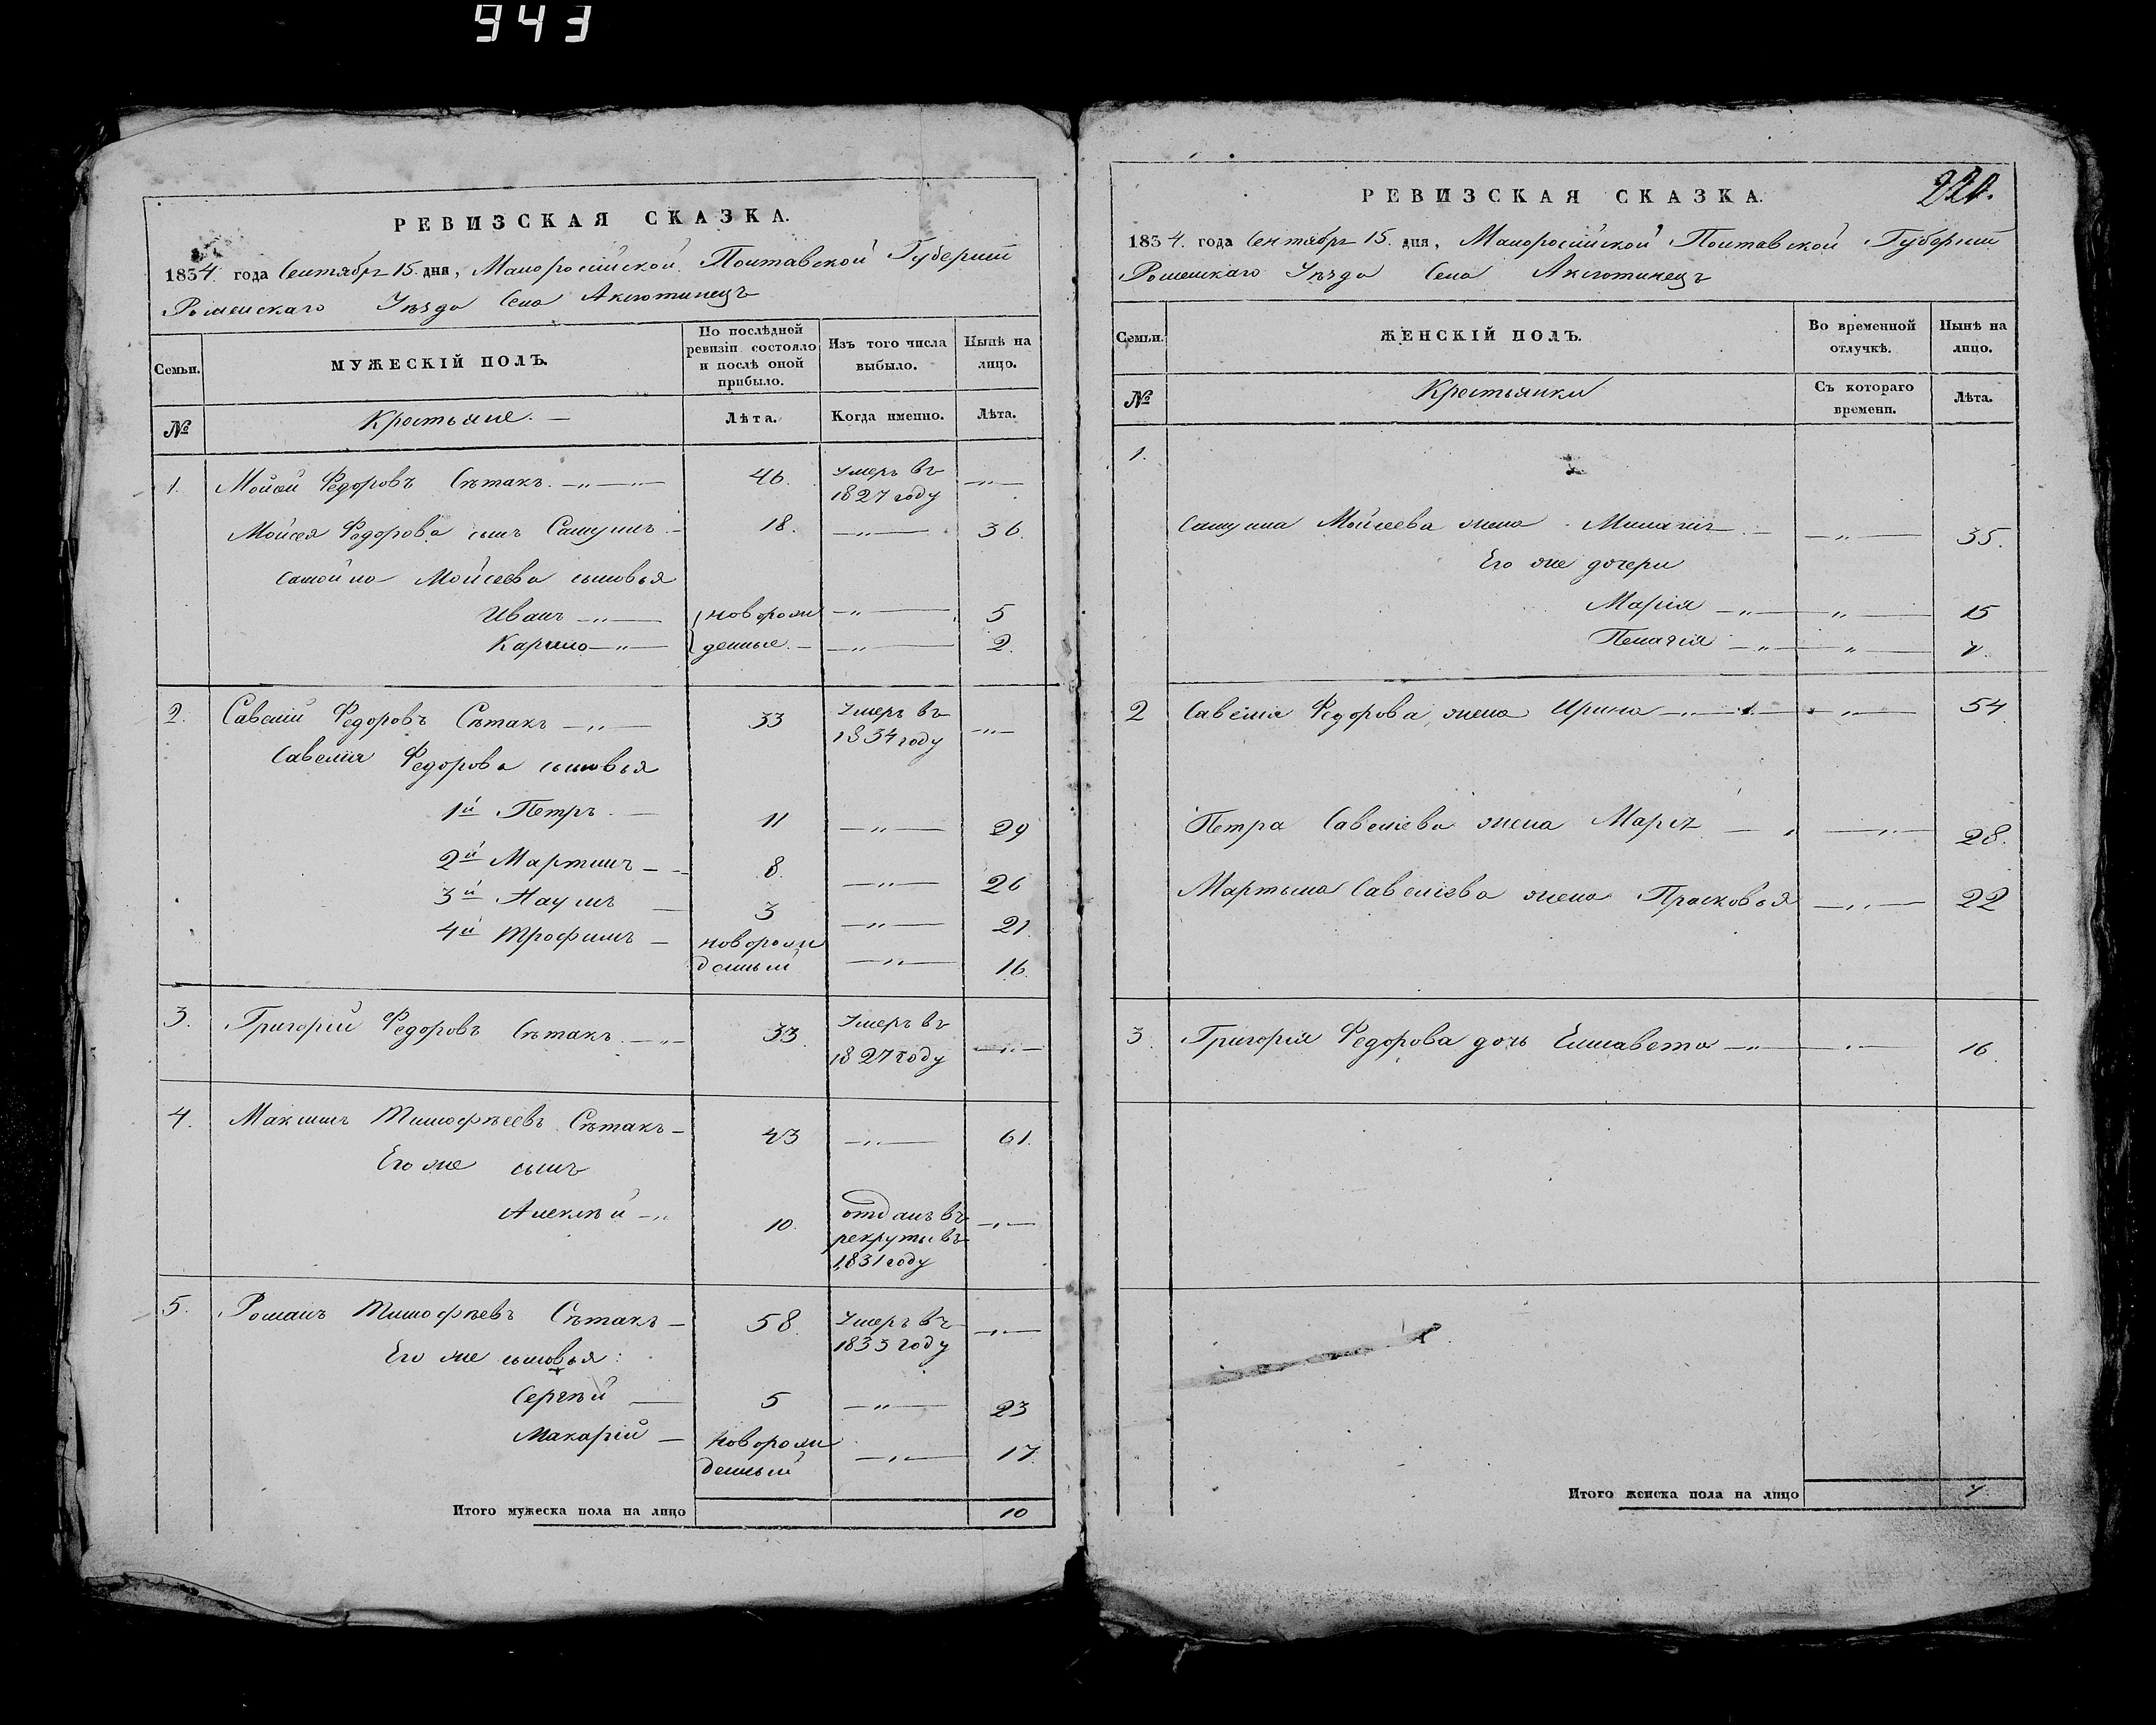 943
РЕВИЗСКАЯ СКАЗКА.
1834. года Сентября 15. дня, Малоросiйской Полтавской Губернiи
Роменскаго Уѣзда Села Аксютинецъ
Семьи.
МУЖЕСКIЙ ПОЛЪ.
По послѣдней ревизiи состояло и послѣ оной прибыло.
Изъ того числа выбыло.
Нынѣ на лицо.
№
Крестьяне.
Лѣта.
Когда именно.
Лѣта.
1. Мойсей Федоровъ Сѣтакъ. 46. Умеръ въ
1827 году
Мойсея Федорова сынъ 18. 36.
Самойла Мойсеева сыновья
Иванъ новорож 5
Карпо денные. 2.
2. Савелiй Федоровъ Сѣтакъ 33 Умеръ въ
1834 году
Савелiя Федорова сыновья
1й Петръ. 11 29
2й Мартинъ 8. 26
3й Наумъ 3 21
4й Трофимъ новорож
денный 16.
3. Григорiй Федоровъ Сѣтакъ. 33. Умеръ въ
1827 году
4. Максимъ Тимофѣевъ Сѣтакъ 43 61.
Его же сынъ
Алексѣй 10. отданъ въ
рекруты въ
1831 году
5. Романъ Тимофѣевъ Сѣтакъ 58. Умеръ въ
1833 году
Его же сыновья:
Сергѣй 5 23
Макарiй новорож
денный 17.
Итого мужеска пола на лицо 10
РЕВИЗСКАЯ СКАЗКА.
1834. года Сентября 15. дня, Малоросiйской Полтавской Губернiи
Роменскаго Уѣзда Села Аксютинецъ
Семьи.
ЖЕНСКIЙ ПОЛЪ.
Во временной отлучкѣ.
Нынѣ на лицо.
№
Крестьянки
Съ котораго времени.
Лѣта.
1.
Мойсеева жена 35.
Его же дочери
Марiя 15
Пелагiя 7.
2 Савелiя Федорова жена Ирина 54
Петра Савелiева жена Марiя 28.
Мартына Савелiева жена Прасковья 22
3. Григорiя Федорова дочь Елисавета 16.
Итого женска пола на лицо 7.